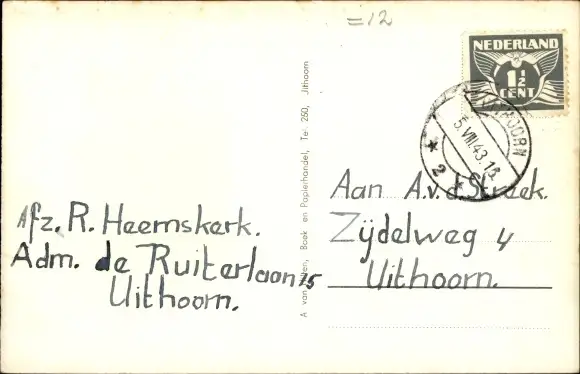 =12
NEDERLAND
1½
CENT
UITHOORN
5.VIII.43.13
2
Boek en Papierhandel, Te 250, Uithoorn
Aan A.v.d.Streek.
Zÿdelweg 4
Uithoorn.
Afz. R. Heemskerk.
Adm. de Ruiterlaan 15
Uithoorn.